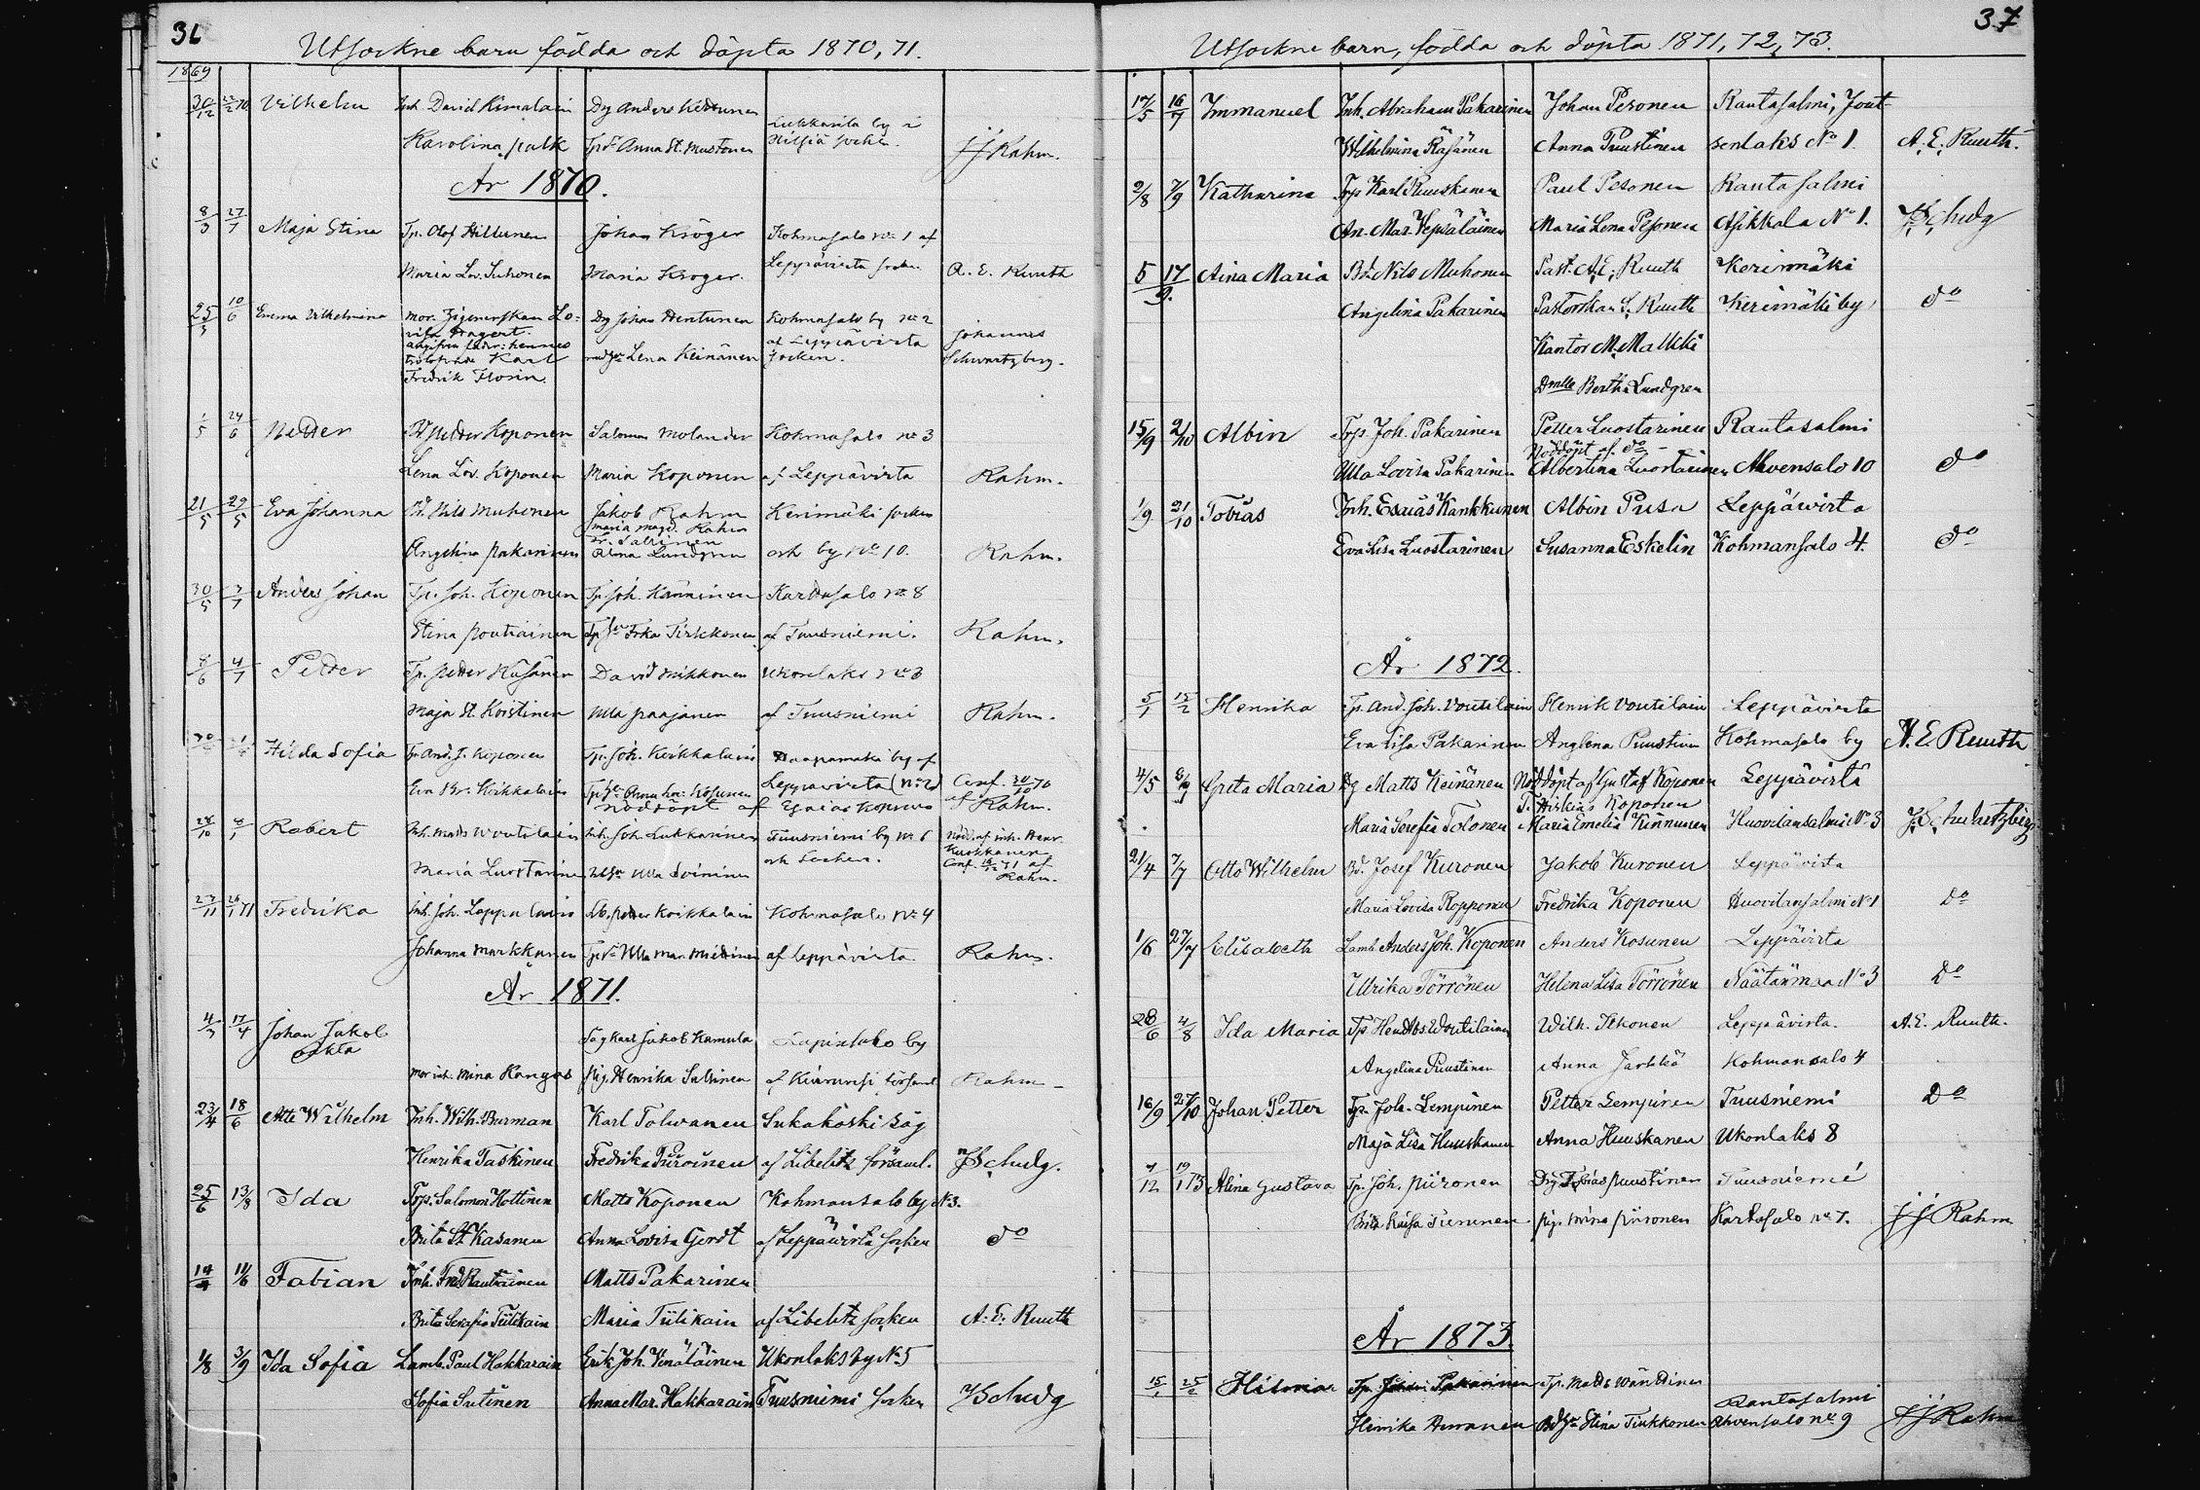 36
Utsockne barn födda och döpta 1870, 71.
1869
30/12 22/2 70 Vilhelm Inh. David Rimalain Dg Anders
Karolina Palk Anna St. Mustonen Lukkarila by i Nilsiä socken. JJ Rahm.
År 1870.
8/3 27/7 Maja Stina Tp. Olof Hiltunen Johan Kröger Kohmasalo No 1 af
Maria Lov. Suhonen Maria Kröger. Leppävirta socken. A. E. Ruuth
25/3 10/6 Emma Vilhelmina mor. Dg Johan Hentunen Kohmasalo by No 2
Lena Keinänen af Leppävirta socken. Johannes Schwartzberg.
Karl
Fredrik Florin.
1/5 24/6 Petter Petter Koponen Salomon Molander Kohmasalo No 3
Lena Lov. Koponen Maria Koponen af Leppävirta Rahm.
21/5 29/5 Eva Johanna Nils Muhonen Jakob Rahm Kerimäki socken
Maria Magd. Rahm
Angelina Pakarinen Alma Lundgren och by No 10. Rahm.
30/5 3/7 Anders Johan Tp. Joh. Koponen Tp. Joh. Känninen Kartasalo No 8
Stina Poutiainen Pirkkonen af Tuusniemi. Rahm.
8/6 4/7 Petter Tp. Petter Räsänen David Mikkonen Ukonlaks No 3
Maja St. Koistinen Ulla Paajanen af Tuusniemi Rahm.
Hilda Sofia Tp. And. J. Koponen Tp. Joh. Koikkalain Haapamäki by af
Koikkalain Koponen Leppävirta (No 2) Conf. 30/10 70
nöddöpt af Esaias Koponen af Rahm.
Robert Inh. Matts Woutilain Inh. Joh. Lukkarinen Tuusniemi by No 6
Maria Luostarinen Ulla Soininen och socken. Conf. 71 af Rahm.
27/11 26/1 71 Fredrika Inh. Joh. Leppälain Petter Koikkalain Kohmasalo No 4
Johanna Markkanen Ulla Mar. Miettinen af Leppävirta Rahm.
År 1871.
4/3 17/4 Johan Jakob Karl Jakob Kamula by
oäkta
mor inh. Mina Kangas pig. Henrika Sutinen af Kiuruvesi församl. Rahm
23/4 18/6 Otto Wilhelm Inh. Wilh. Burman Karl Tolwanen Sukakoski såg
Henrika Taskinen Fredrika Puroinen af Libelitz församl. JSchwbg.
25/6 13/8 Ida Torp. Salomon Hottinen Matts Koponen Kohmansalo by N 3.
Brita St. Kasanen Anna Lovisa Gerdt af Leppäwirta socken do
14/4 11/6 Fabian Inh. Fred. Rautiainen Matts Pakarinen
Brita Serafia Tiilikain Maria Tiilikain af Libelitz socken A. E. Ruuth
1/8 3/9 Ida Sofia Lamb. Paul Hakkarain Erik Joh. Venäläinen Ukonlaks by No 5
Sofia Sutinen Anna Mar. Hakkarain Tuusniemi socken JSchwbg
37
Utsockne barn, födda och döpta 1871, 72, 73.
17/5 16/7 Immanuel Inh. Abraham Pakarinen Johan Pesonen Rantasalmi, Jout-
Wilhelmina Räsänen Anna Puustinen senlaks No 1. A. E. Ruuth.
2/8 7/9 Katharina Tp. Karl Ruuskanen Paul Pesonen Rantasalmi
An. Mar. Vepsäläinen Maria Lena Pesonen Asikkala No 1. JSchwbg
5 17/9. Aina Maria Bd. Nils Muhonen Past. A. E. Ruuth Kerimäki
Angelina Pakarinen Pastorskan S. Ruuth Kerimäki by do
Kantor M. Malkki
Dmlle Bertha Lundgren
15/9 2/10 Albin Torp. Joh. Pakarinen Petter Luostarinen Rantasalmi
Nöddöpt af do
Ulla Lovisa Pakarinen Albertina Luostarinen Ahvensalo 10 do
1/9 21/10 Tobias Inh. Esaias Kankkunen Albin Pusa Leppäwirta
Eva Lisa Luostarinen Susanna Eskelin Kohmansalo 4. do
År 1872.
5/1 15/2 Henrika Tp. And. Joh. Voutilain Henrik Voutilain Leppävirta
Eva Lisa Pakarinen Anglena Puustinen Kohmasalo by A. E. Ruuth
4/5 8/9 Greta Maria Dg Matts Keinänen Nöddöpt af Gustaf Koponen Leppävirta
T. Hiskias Koponen
Maria Serefia Tolonen Maria Emelia Kinnunen Huovilansalmi No 3 J Schwartzberg
21/4 7/7 Otto Wilhelm Bd. Josef Kuronen Jakob Kuronen Leppävirta
Maria Lovisa Ropponen Fredrika Koponen Huovilansalmi No 1 Do
1/6 27/7 Elisabeth Lamb. Anders Joh. Koponen Anders Kosunen Leppävirta
Ulrika Törrönen Helena Lisa Törrönen Näätänmaa No 3 Do
28/6 4/8 Ida Maria Tp. Woutilainen Wilh. Ikonen Leppävirta. A. E. Ruuth.
Angelina Puustinen Anna Jarkkö Kohmansalo 4
16/9 27/10 Johan Petter Tp. Joh. Lempinen Petter Lempinen Tuusniemi Do
Maja Lisa Huuskanen Anna Huuskanen Ukonlaks 8
4/12 19/1 73 Alina Gustava Tp. Joh. Piironen Dg Tobias Puustinen Tuusniemi
Brita Kaisa Tuuninen pig. Mina Piironen Kartasalo No 7. JJ Rahm
År 1873.
15/1 25/2 Hilma Tp. Johan Pakarinen Tp. Matts Wänttinen Rantasalmi
Henrika Immonen Stina Tirkkonen Ahvensalo No 9 JJ Rahm